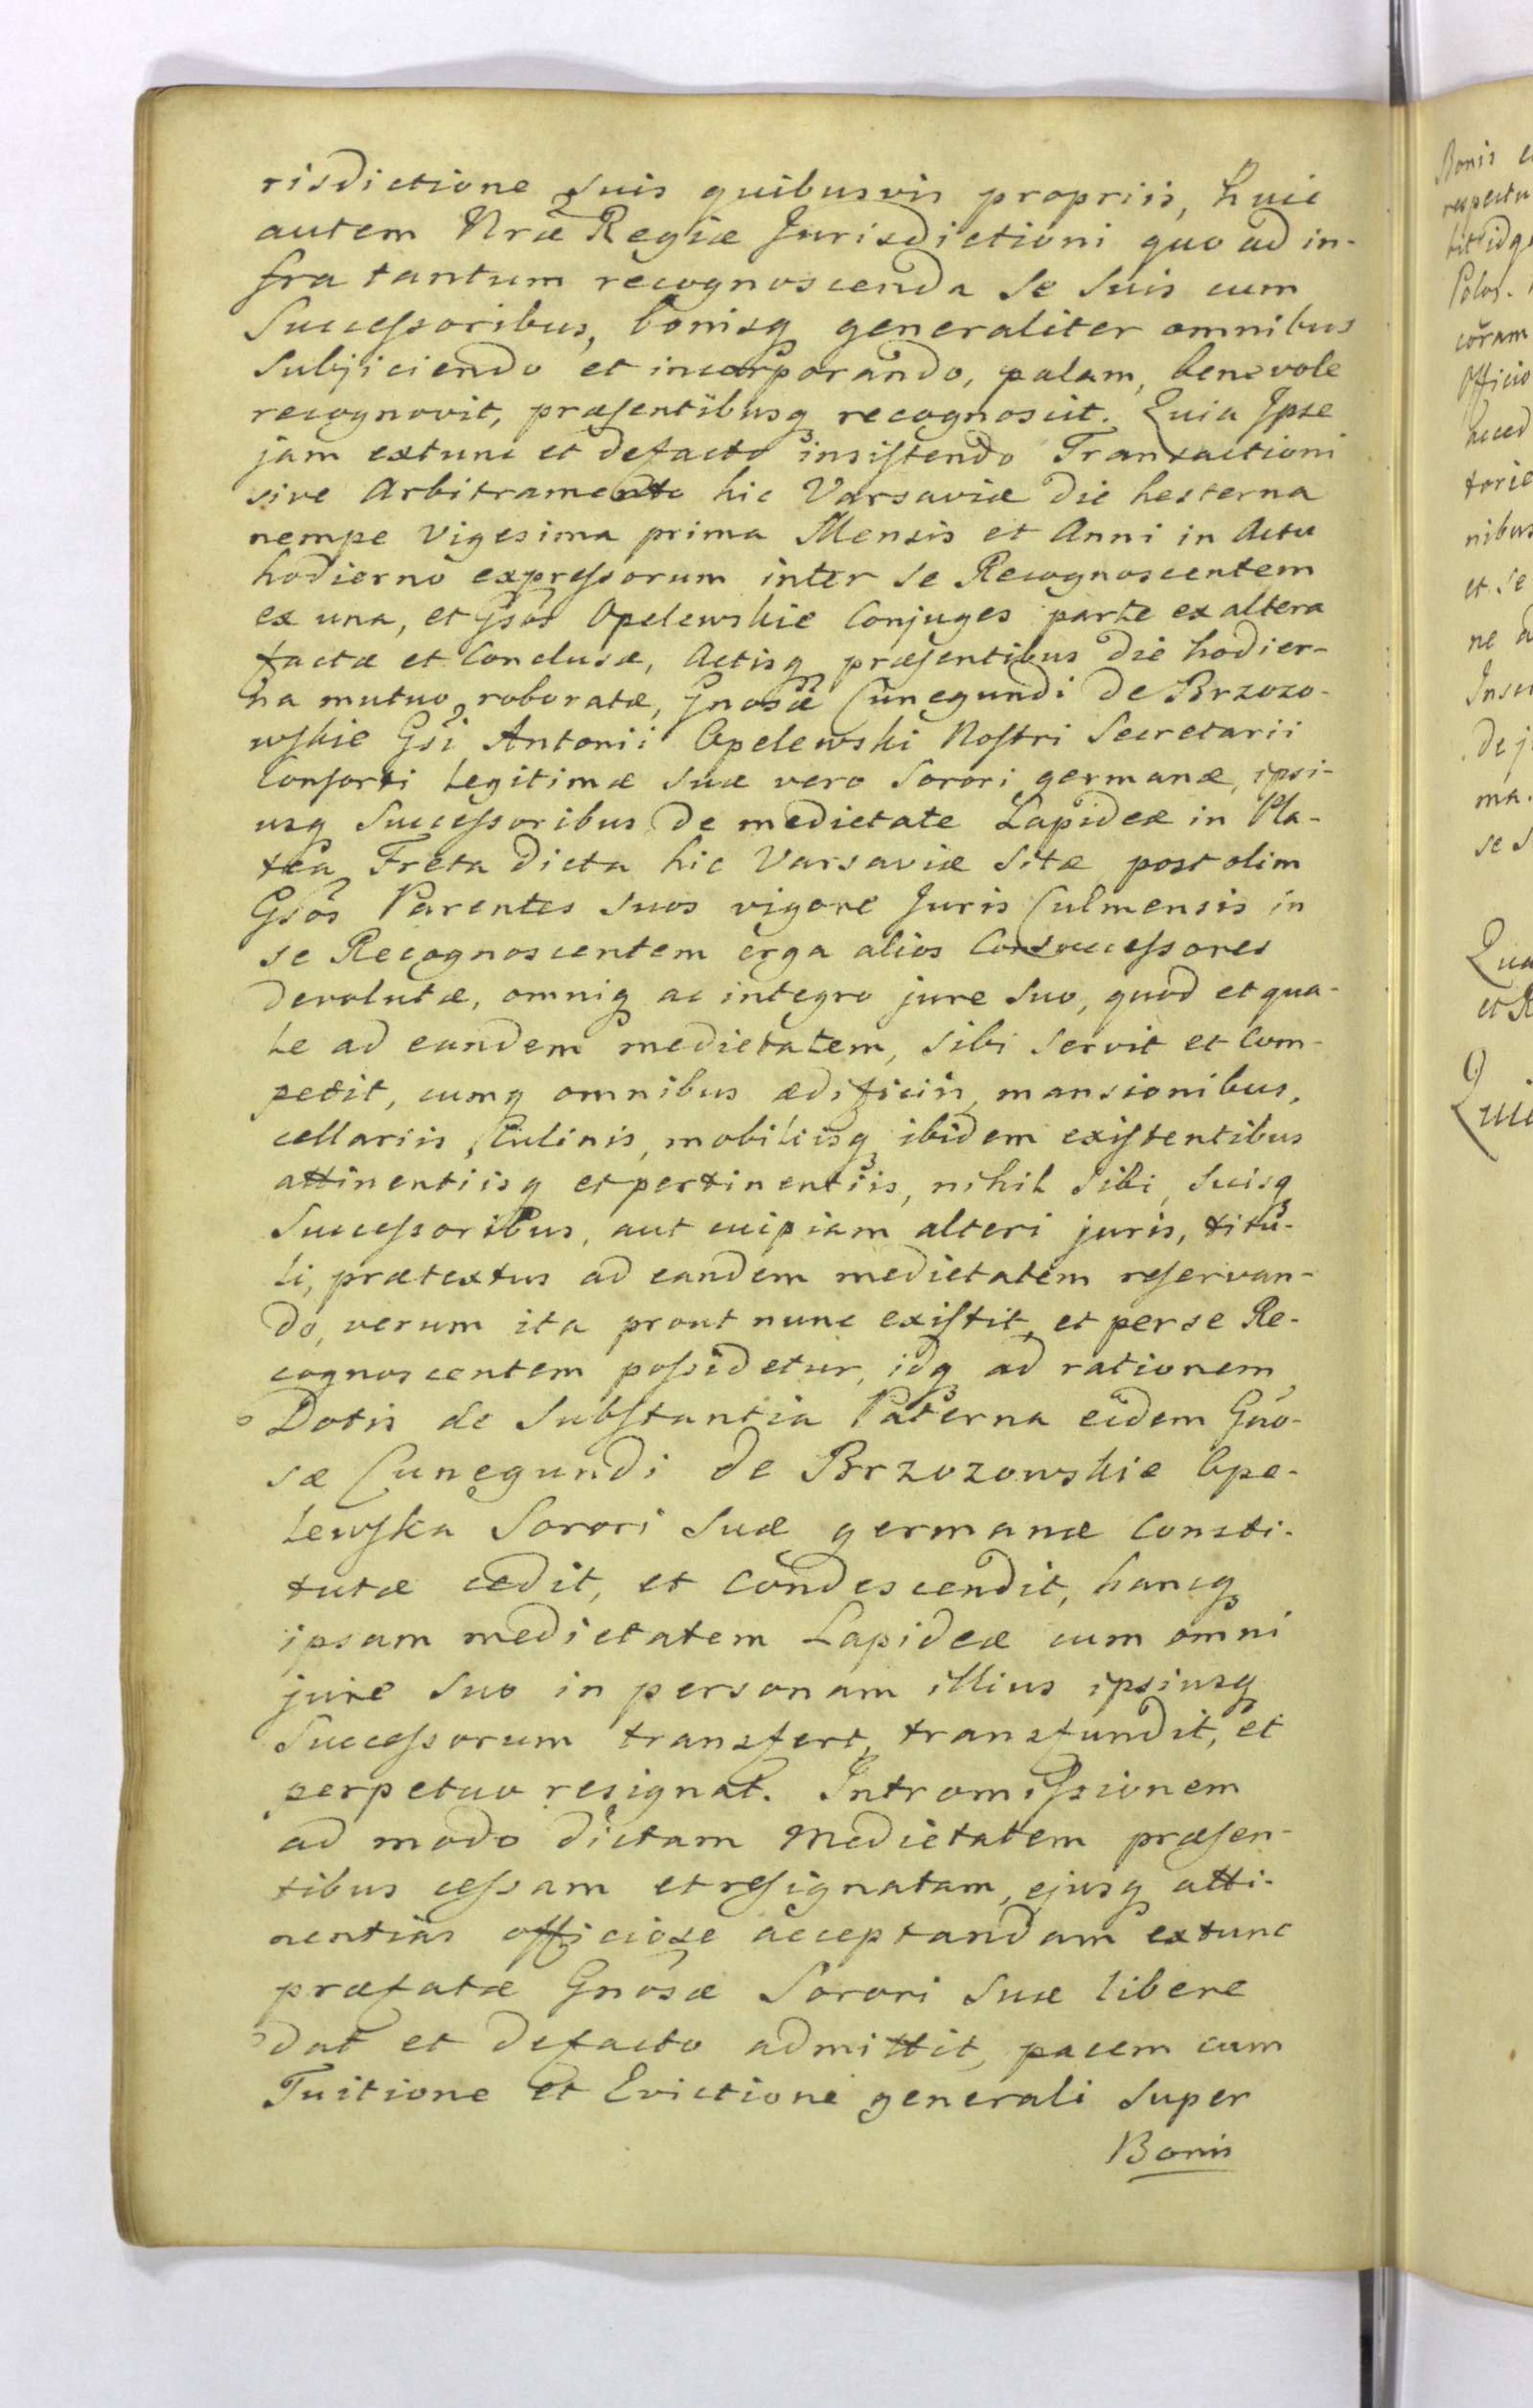 risdictione suis quibusvis propriis, huic
autem Nræ Regiæ Jurisdictioni quo ad in-
fra tantum recognoscenda se suis cum
Successoribus, bonisq generaliter omnibus
Subjiciendo et incorporando, palam, benevole
recognovit, præsentibusq recognoscit. Quia Ipse
jam extunc et defacto insistendo Transactioni
sive Arbitramento hic Varsaviæ die hesterna
nempe vigesima prima Mensis et Anni in Actu
hodierno expressorum inter se Recognoscentem
ex una, et Gsos Opelewskie Conjuges parte ex altera
factæ et Conclusæ, Actisq præsentibus die hodier-
na mutuo roboratæ, Gnosæ Cunegundi de Brzozo-
wskie Gsi Antonii Opelewski Nostri Secretarii
Consorti legitimæ suæ vero Sorori germanæ, ipsi-
usq Successoribus de medietate Lapideæ in Pla-
tea Freta dicta hic Varsaviæ sitæ post olim
Gsos Parentes suos vigore Juris Culmensis in
se Recognoscentem erga alios Consuccessores
devolutæ, omniq ac integro jure suo, quod et qua-
le ad eandem medietatem, sibi servit et com-
petit, cumq omnibus ædificiis, mansionibus,
cellariis, Culinis, mobiliisq ibidem existentibus
attinentiisq et pertinentiis, nihil sibi, suisq
Successoribus, aut cuipiam alteri juris, titu-
li, prætextus ad eandem medietatem reservan-
do, verum ita prout nunc existit, et per se Re-
cognoscentem possidetur, idq ad rationem
Dotis de Substantia Paterna eidem Gno-
sæ Cunegundi de Brzozowskie Ope-
lewska Sorori suæ germanæ Consti-
tutæ cedit, et Condescendit, hancq
ipsam medietatem Lapideæ cum omni
jure suo in personam illius ipsiusq
Successorum transfert, transfundit, et
perpetuo resignat. Intromissionem
ad modo dictam Medietatem præsen-
tibus cessam et resignatam, ejusq atti-
nentias officiose acceptandam extunc
præfatæ Gnosæ Sorori suæ libere
dat et defacto admittit, pacem cum
Tuitione et Evictione generali super
Bonis
Bonis
respectu
Polo.
coram
Officio
nibus
et se
ne
de j
ma.
se s
Qua
et R